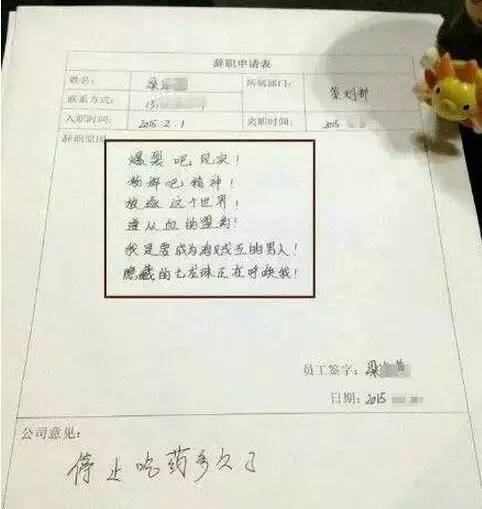 辞职申请表
姓名: 梁
所属部门: 策划部
联系方式: 13
入职时间: 2015.2.1
离职时间: 2015
辞职原因
爆裂吧现实!
粉碎吧精神!
放逐这个世界!
遵从血的盟约!
我是要成为海贼王的男人!
隐藏的七龙珠正在呼唤我!
员工签字: 梁
日期: 2015
公司意见:
停止吃药多久了